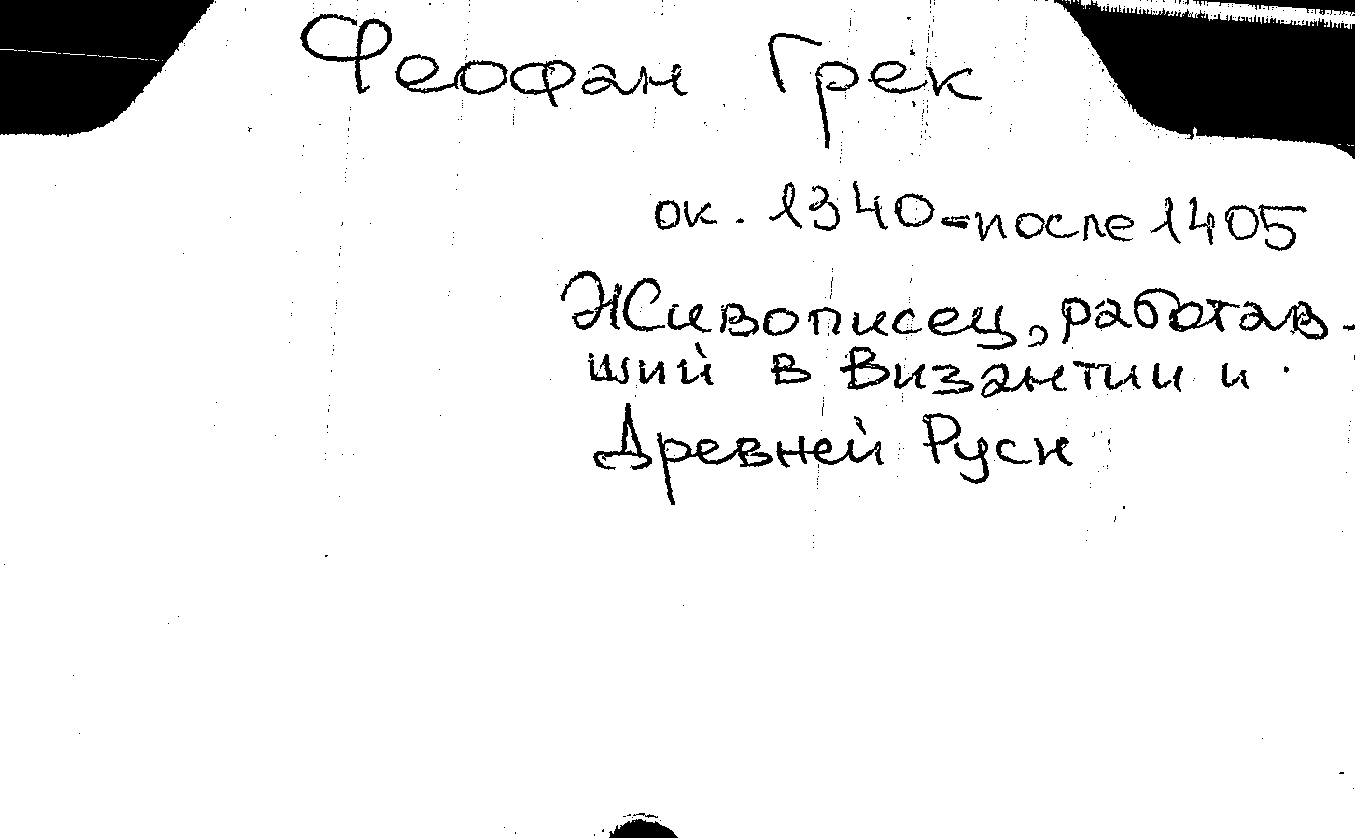 Феофан Грек
ок. 1340-после 1405
Живописец, работав-
ший в Византии и
Древней Руси